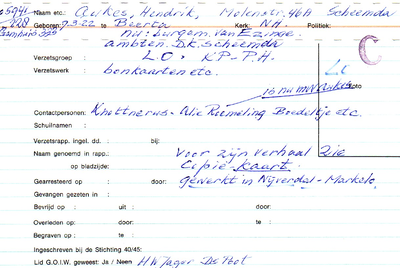 Naam etc. Aukes, Hendrik, Molenstr. 46A Scheemda
Geboren: 7-3-22 Beerta Kerk: N.H. Politiek:
nu: burgem. van Ezinge
ambten. D.K. Scheemda
Verzetsgroep : LO - KP - P.A.
Verzetswerk bonkaarten etc.
Contactpersonen: Knottnerus - Alie Roemeling Boedeltje etc.
Schuilnaam :
Verzetsrapp. ingel. dd.: bij:
Naam genoemd in rapp.: voor zijn verhaal zie
op bladzijde: Copie-kaart.
Gearresteerd op : door: Gewerkt in Nijverdal - Markelo
Gevangen gezeten in :
Bevrijd op : uit : door:
Overleden op: door: te :
Begraven op : te :
Ingeschreven bij de Stichting 40/45:
Lid G.O.I.W. geweest: Ja / Neen H W Jager